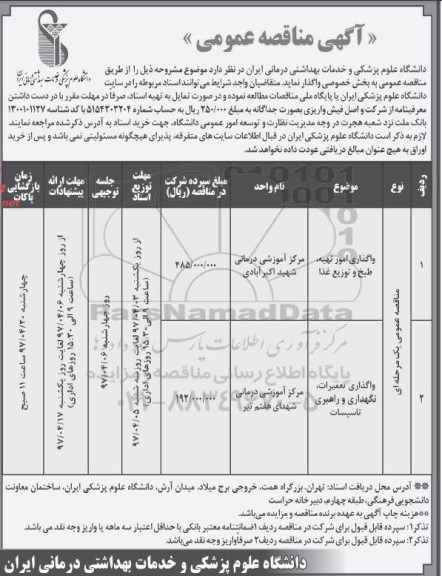 « آگهی مناقصه عمومی »
دانشگاه علوم پزشکی و خدمات بهداشتی درمانی ایران در نظر دارد موضوع مشروحه ذیل را از طریق
مناقصه عمومی به بخش خصوصی واگذار نماید. متقاضیان واجد شرایط می‌توانند اسناد مربوطه را در سایت
دانشگاه علوم پزشکی ایران یا پایگاه ملی مناقصات مطالعه نموده و در صورت تمایل به تهیه اسناد، صرفاً در مهلت مقرر با در دست داشتن
معرفینامه از شرکت و اصل فیش واریزی بصورت جداگانه به مبلغ ۲۵۰/۰۰۰ ریال به حساب شماره ۵۱۵۴۳۰۳۲۰۴ با کد شناسه ۱۳۰۰۱۰۱۱۲۷
بانک ملت نزد شعبه هجرت در وجه مدیریت نظارت و توسعه امور عمومی دانشگاه، جهت خرید اسناد به آدرس ذکرشده مراجعه نمایند.
لازم به ذکر است دانشگاه علوم پزشکی ایران در قبال اطلاعات سایت های متفرقه، پذیرای هیچگونه مسئولیتی نمی باشد و پس از خرید
اوراق به هیچ عنوان مبالغ دریافتی عودت داده نخواهد شد.
ردیف
نوع
موضوع
نام واحد
مبلغ سپرده شرکت
در مناقصه (ریال)
مهلت
توزیع
اسناد
جلسه
توجیهی
مهلت ارائه
پیشنهادات
زمان
بازگشایی
پاکات
۱
مناقصه عمومی یک مرحله ای
واگذاری امور تهیه،
طبخ و توزیع غذا
مرکز آموزشی درمانی
شهید اکبرآبادی
۴۸۵/۰۰۰/۰۰۰
از روز یکشنبه ۹۷/۰۴/۰۳ لغایت روز سه شنبه ۹۷/۰۴/۰۵
(ساعت ۹ الی ۱۵:۳۰ روزهای اداری)
روز چهارشنبه ۹۷/۰۴/۰۶
از روز چهارشنبه ۹۷/۰۴/۰۶ لغایت روز یکشنبه ۹۷/۰۴/۱۷
(ساعت ۹ الی ۱۵:۳۰ روزهای اداری)
چهارشنبه ۹۷/۰۴/۲۰ ساعت ۱۱ صبح
۲
واگذاری تعمیرات،
نگهداری و راهبری
تاسیسات
مرکز آموزشی درمانی
شهدای هفتم تیر
۱۹۲/۰۰۰/۰۰۰
ParsNamadData
مرکز فرآوری اطلاعات پارس نماد داده ها
پایگاه اطلاع رسانی مناقصه و مزایده
۰۲۱-۸۸۳۴۹۶۷۰-۵
** آدرس محل دریافت اسناد: تهران، بزرگراه همت، خروجی برج میلاد، میدان آرش، دانشگاه علوم پزشکی ایران، ساختمان معاونت
دانشجویی فرهنگی، طبقه چهارم، دبیرخانه حراست
**هزینه چاپ آگهی به عهده برنده مناقصه و مزایده می‌باشد.
تذکر۱: سپرده قابل قبول برای شرکت در مناقصه ردیف ۱ضمانتنامه معتبر بانکی با حداقل اعتبار سه ماهه یا واریز وجه نقد می باشد.
تذکر۲: سپرده قابل قبول برای شرکت در مناقصه ردیف۲ صرفاًواریز وجه نقد می‌باشد.
دانشگاه علوم پزشکی و خدمات بهداشتی درمانی ایران